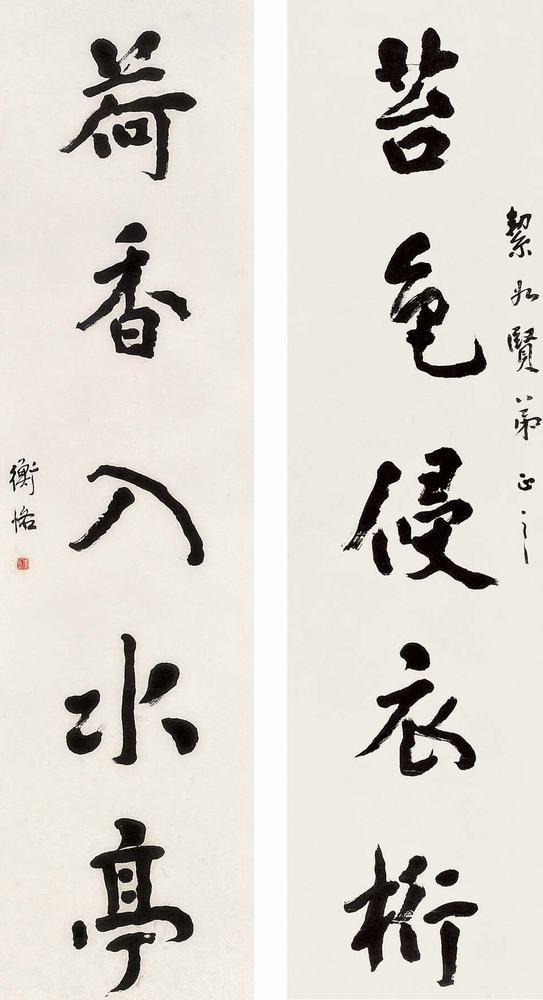 苔色侵衣桁
絜如贤弟正之
荷香入水亭
衡恪